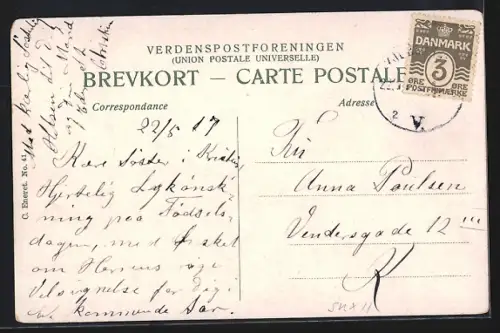 VERDENSPOSTFORENINGEN
(UNION POSTALE UNIVERSELLE)
BREVKORT – CARTE POSTALE
Correspondance
Adresse
DANMARK
3
ØRE ØRE
POSTFRIMÆRKE
V.
2
C. Eneret. No. 41
22/5 17
Kære Søster i
Hjertelig Lykønsk-
ning paa Fødsels-
dagen, med Ønsket
om Herrens rige
Velsignelse for Dig i
det kommende Aar.
Med kærlig
Hilsen til
og din Mand
Fru
Anna Poulsen
Vendersgade 12
K